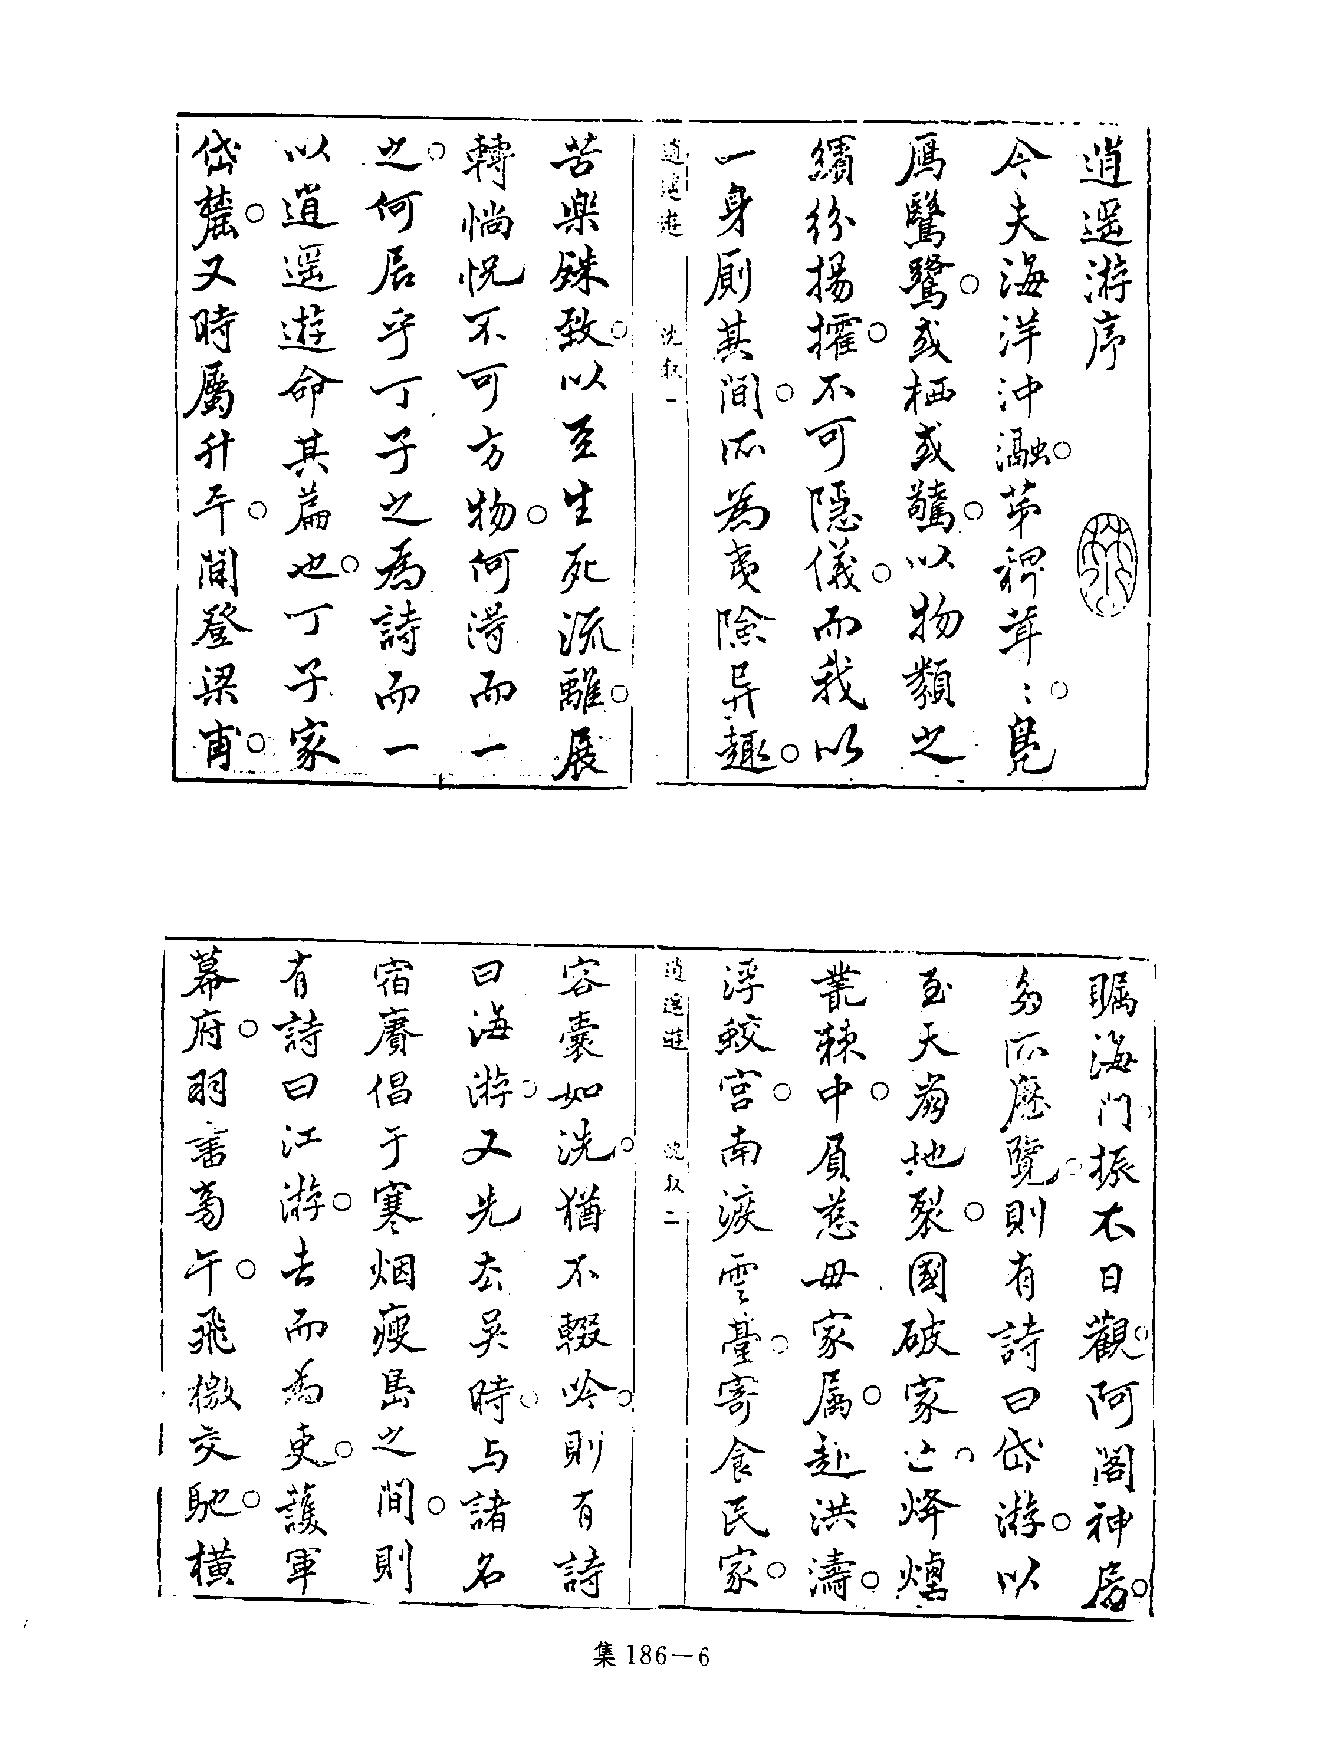 逍遥游序
今夫海洋沖瀜。茀稗茸〻。鳧
鴈鷖鷺。或栖或驚。以物類之
繽紛揚㩴。不可隱儀。而我以
一身厠其間。所為夷險异趣。
逍遥遊 沈叙一
苦樂殊致。以至生死流離。展
轉惝怳不可方物。何渇而一
之。何居乎丁子之為詩而一
以逍遥遊命其篇也。丁子家
岱麓。又時屬升平。間登梁甫。
矚海門。振衣日觀。阿閣神房。
多所歷覽。則有詩曰岱游。以
至天崩地裂。國破家亡。烽燧
叢棘中。負慈毋家属。赴洪濤。
浮鮫宮。南渡雲臺。寄食民家。
逍遥遊 沈叙二
容囊如洗。猶不輟吟。則有詩
曰海游。又先去吴時。与諸名
宿賡倡于寒烟瘦島之間。則
有詩曰江游。去而為吏。護軍
幕府。羽書旁午。飛檄交馳。橫
集186—6